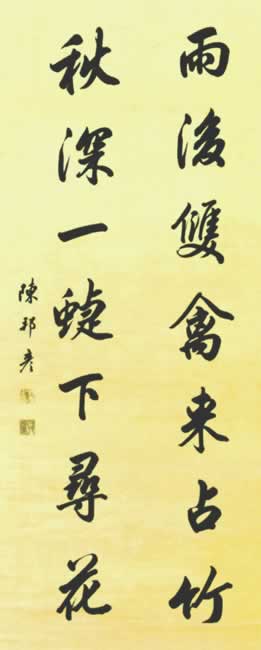 雨後雙禽来占竹
秋深一蜨下尋花
陳邦彦